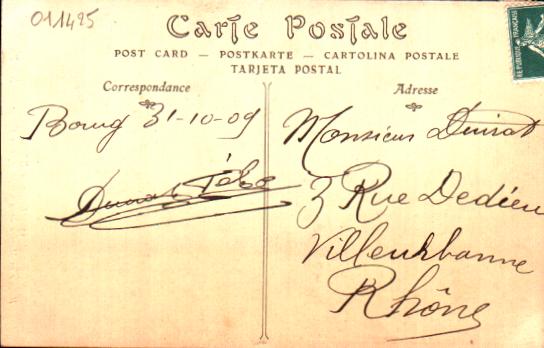 011425
Carte Postale
POST CARD — POSTKARTE — CARTOLINA POSTALE
TARJETA POSTAL
Correspondance
Adresse
REPUBLIQUE FRANÇAISE
Bourg 31-10-09
Monsieur
3 Rue Dedieu
Villeurbanne
Rhône